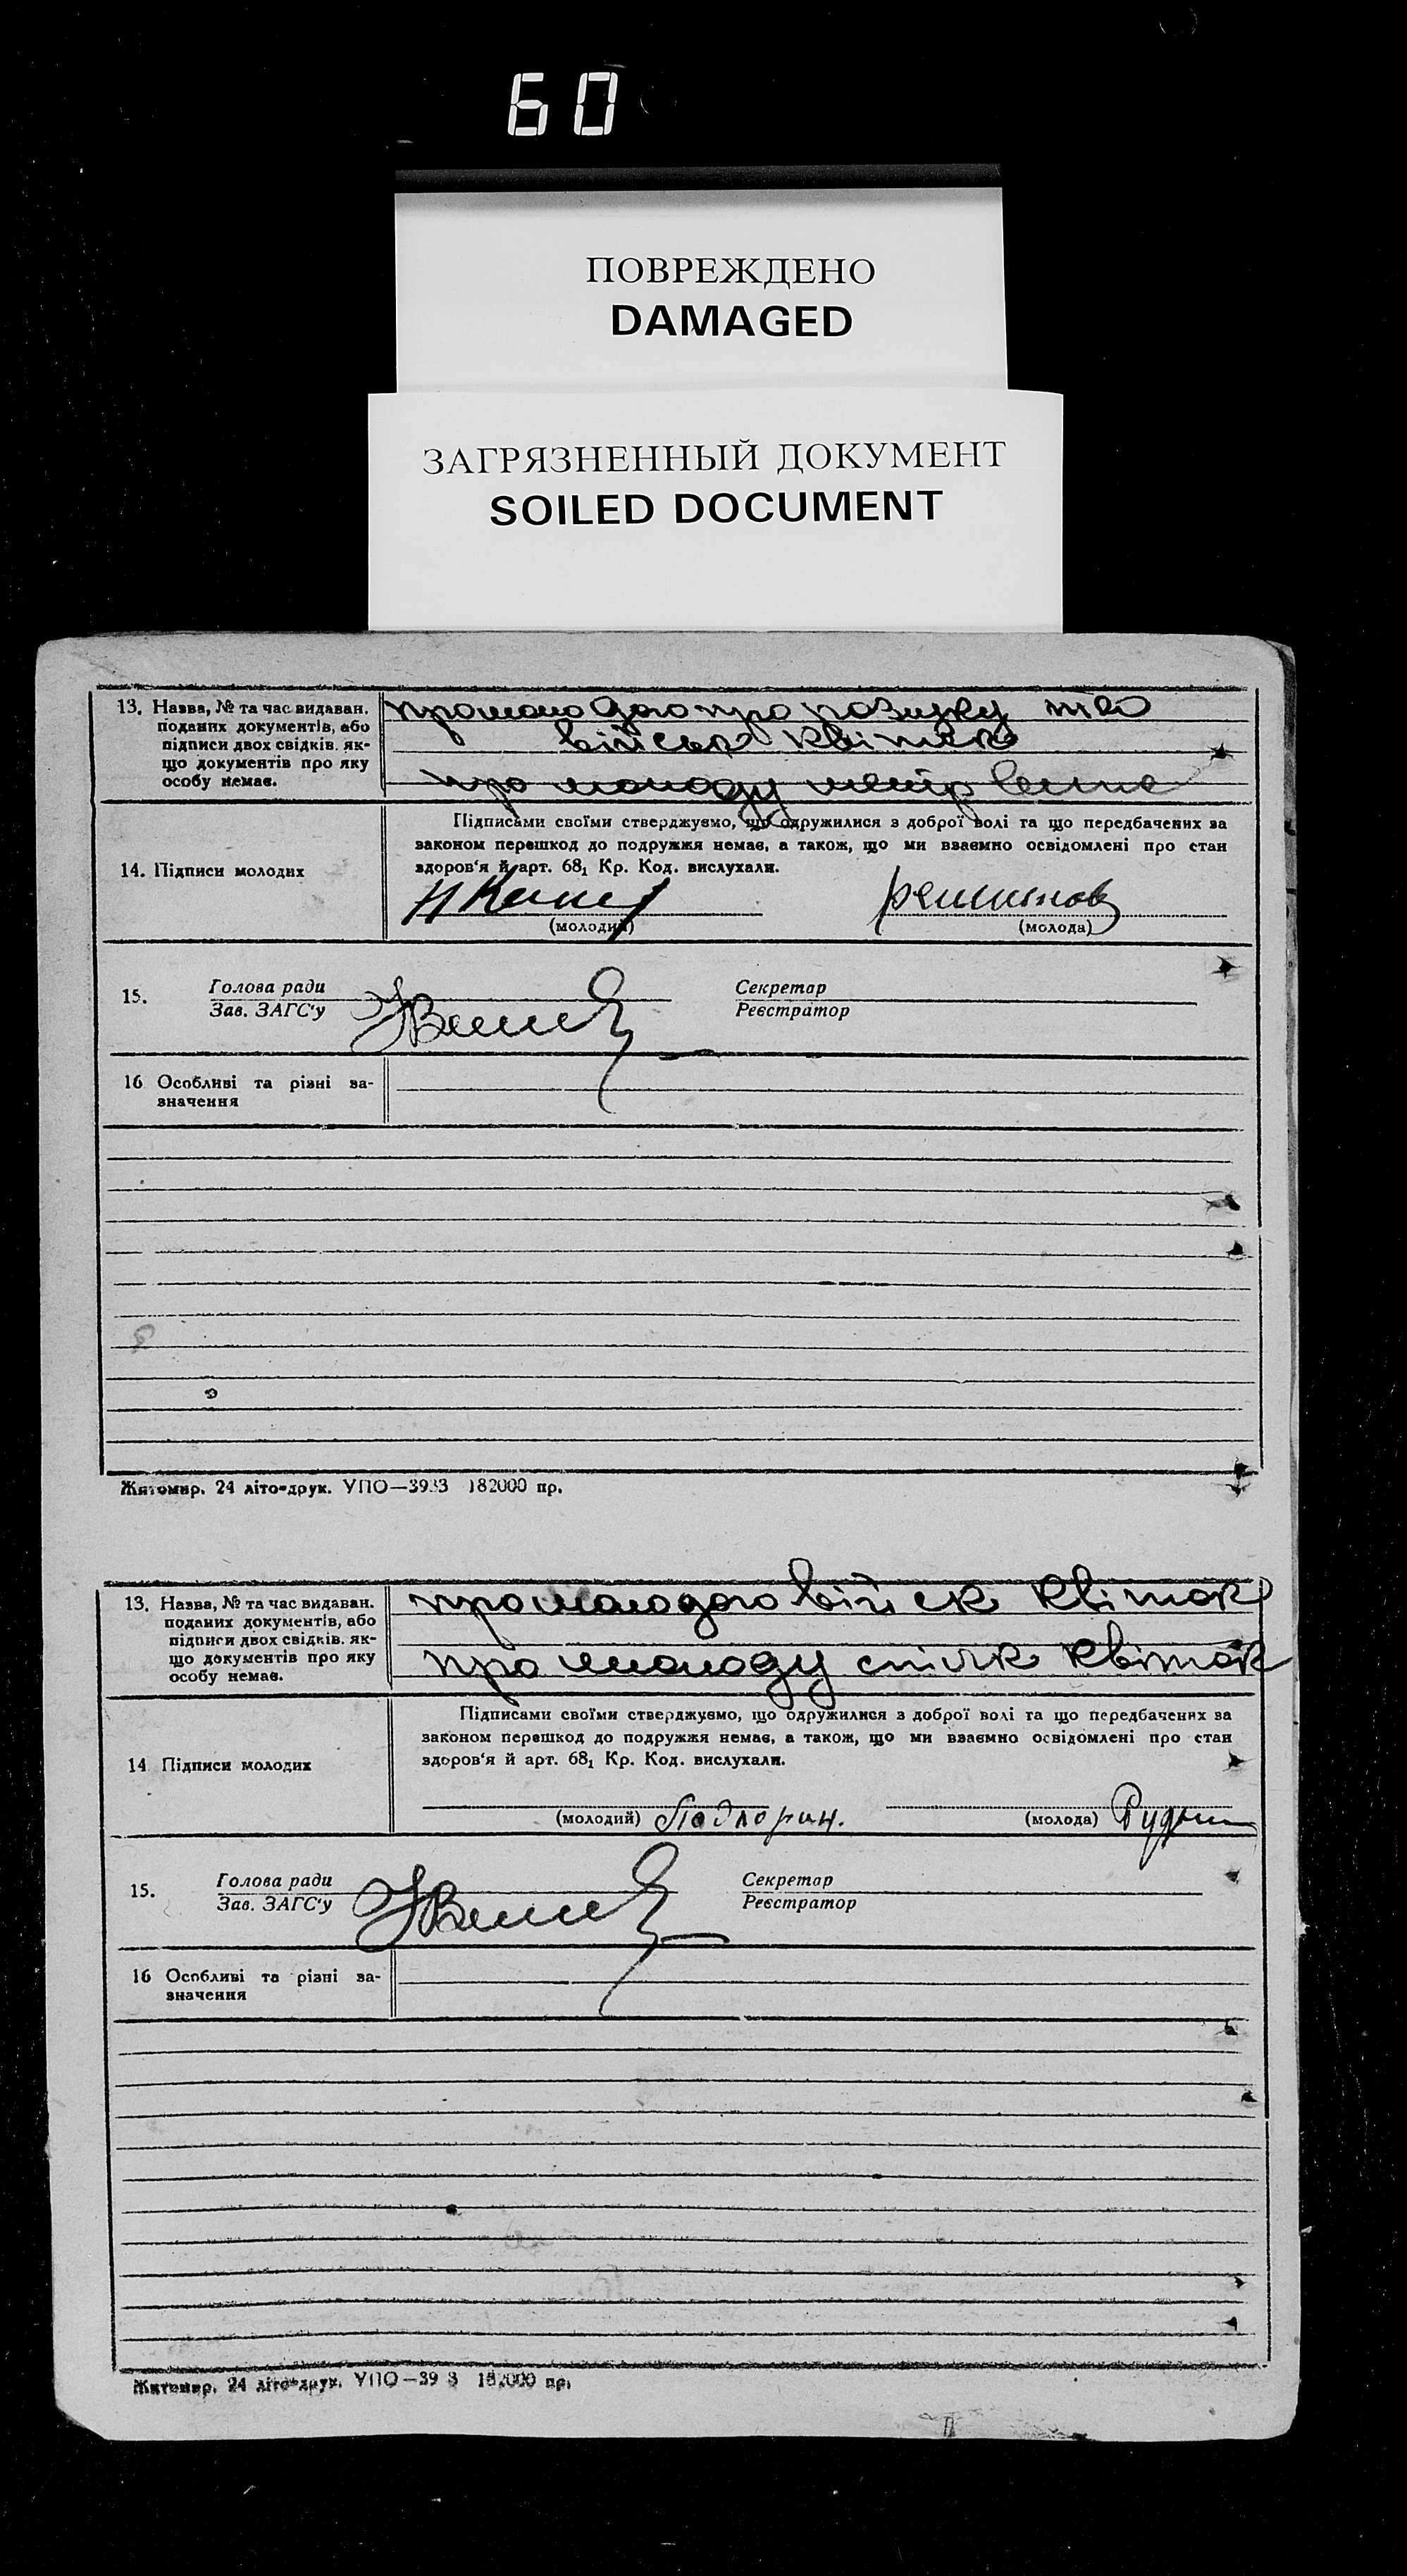 60
ПОВРЕЖДЕНО
DAMAGED
ЗАГРЯЗНЕННЫЙ ДОКУМЕНТ
SOILED DOCUMENT
13. Назва, № та час видаван.
поданих документів, або
підписи двох свідків. як-
що документів про яку
особу немає.
про молодого про розписку та
військ квіток
про молоду
Підписами своїми стверджуємо, що одружилися з доброї волі та що передбачених за
законом перешкод до подружжя немає, а також, що ми взаємно освідомлені про стан
здоров'я й арт. 68₁ Кр. Код. вислухали.
14. Підписи молодих
(молодий) (молода)
15. Голова ради Секретар
Зав. ЗАГС'у Реєстратор
16 Особливі та різні за-
значення
Житомир. 24 літо-друк. УПО—3933 182000 пр.
13. Назва, № та час видаван.
поданих документів, або
підписи двох свідків. як-
що документів про яку
особу немає.
про молодого війск квіток
про молоду спілк квіток
Підписами своїми стверджуємо, що одружилися з доброї волі та що передбачених за
законом перешкод до подружжя немає, а також, що ми взаємно освідомлені про стан
здоров'я й арт. 68₁ Кр. Код. вислухали.
14 Підписи молодих
(молодий) (молода)
15. Голова ради Секретар
Зав. ЗАГС'у Реєстратор
16 Особливі та різні за-
значення
Житомир. 24 літо-друк. УПО—39 3 182000 пр.